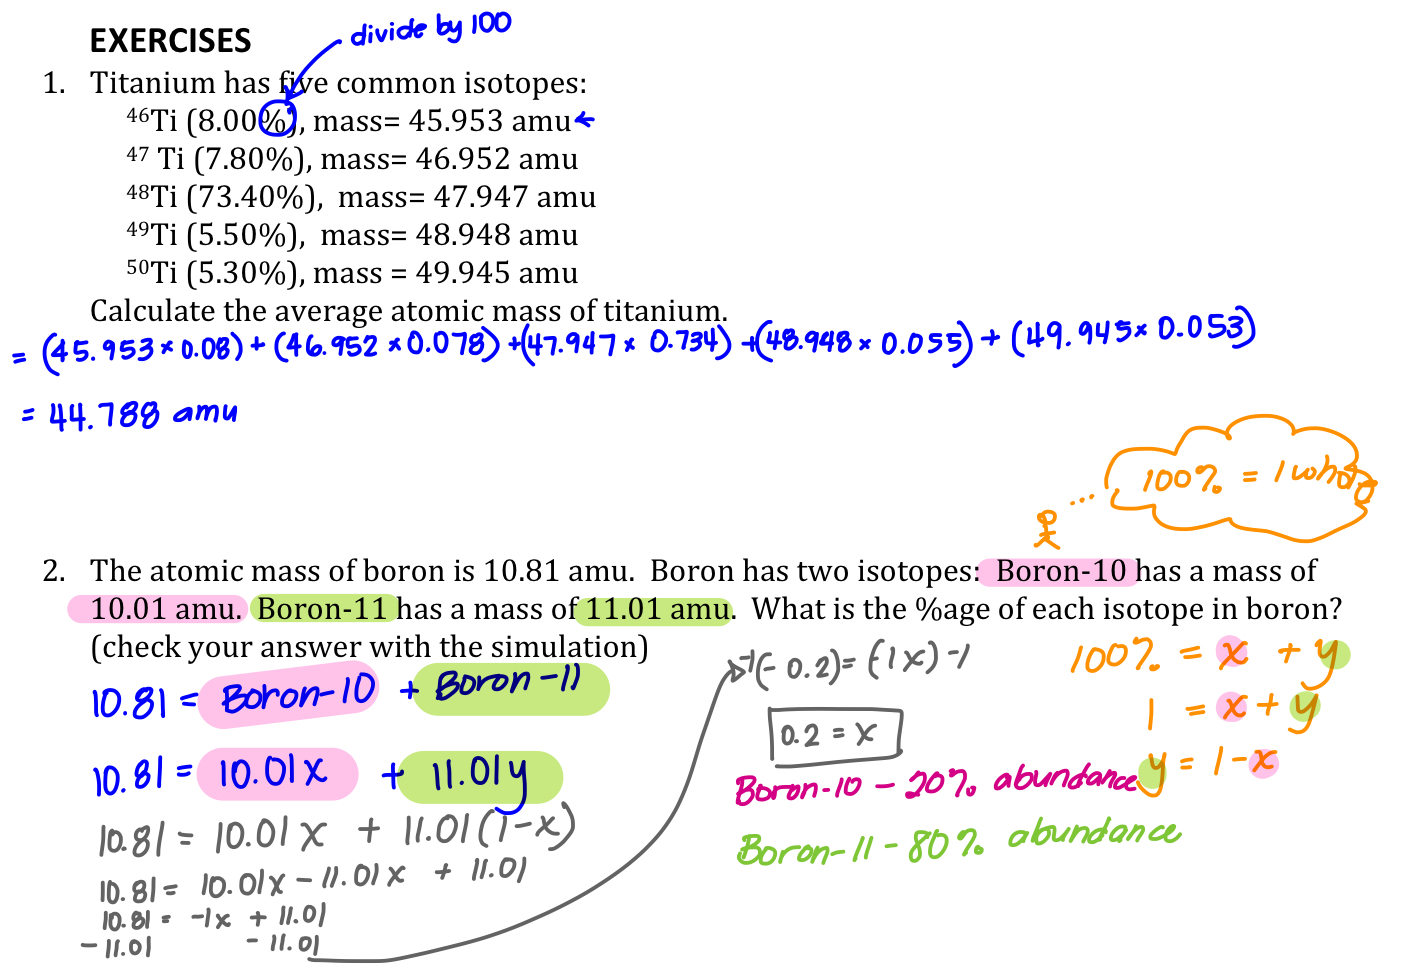 EXERCISES
divide by 100
1. Titanium has five common isotopes:
⁴⁶Ti (8.00%), mass= 45.953 amu
⁴⁷ Ti (7.80%), mass= 46.952 amu
⁴⁸Ti (73.40%), mass= 47.947 amu
⁴⁹Ti (5.50%), mass= 48.948 amu
⁵⁰Ti (5.30%), mass = 49.945 amu
Calculate the average atomic mass of titanium.
= (45.953 × 0.08) + (46.952 × 0.078) + (47.947 × 0.734) + (48.948 × 0.055) + (49.945 × 0.053)
= 44.788 amu
100% = 1 whole
2. The atomic mass of boron is 10.81 amu. Boron has two isotopes: Boron-10 has a mass of
10.01 amu. Boron-11 has a mass of 11.01 amu. What is the %age of each isotope in boron?
(check your answer with the simulation)
10.81 = Boron-10 + Boron-11
10.81 = 10.01x + 11.01y
10.81 = 10.01x + 11.01(1-x)
10.81 = 10.01x - 11.01x + 11.01
10.81 = -1x + 11.01
-11.01 - 11.01
-1(-0.2) = (-1x) -1
0.2 = x
100% = x + y
1 = x + y
y = 1 - x
Boron-10 - 20% abundance
Boron-11 - 80% abundance